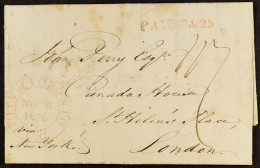 PAID
25
John Perry Esqr
Canada House
St Helen's Place,
London.
NOV
via
New York